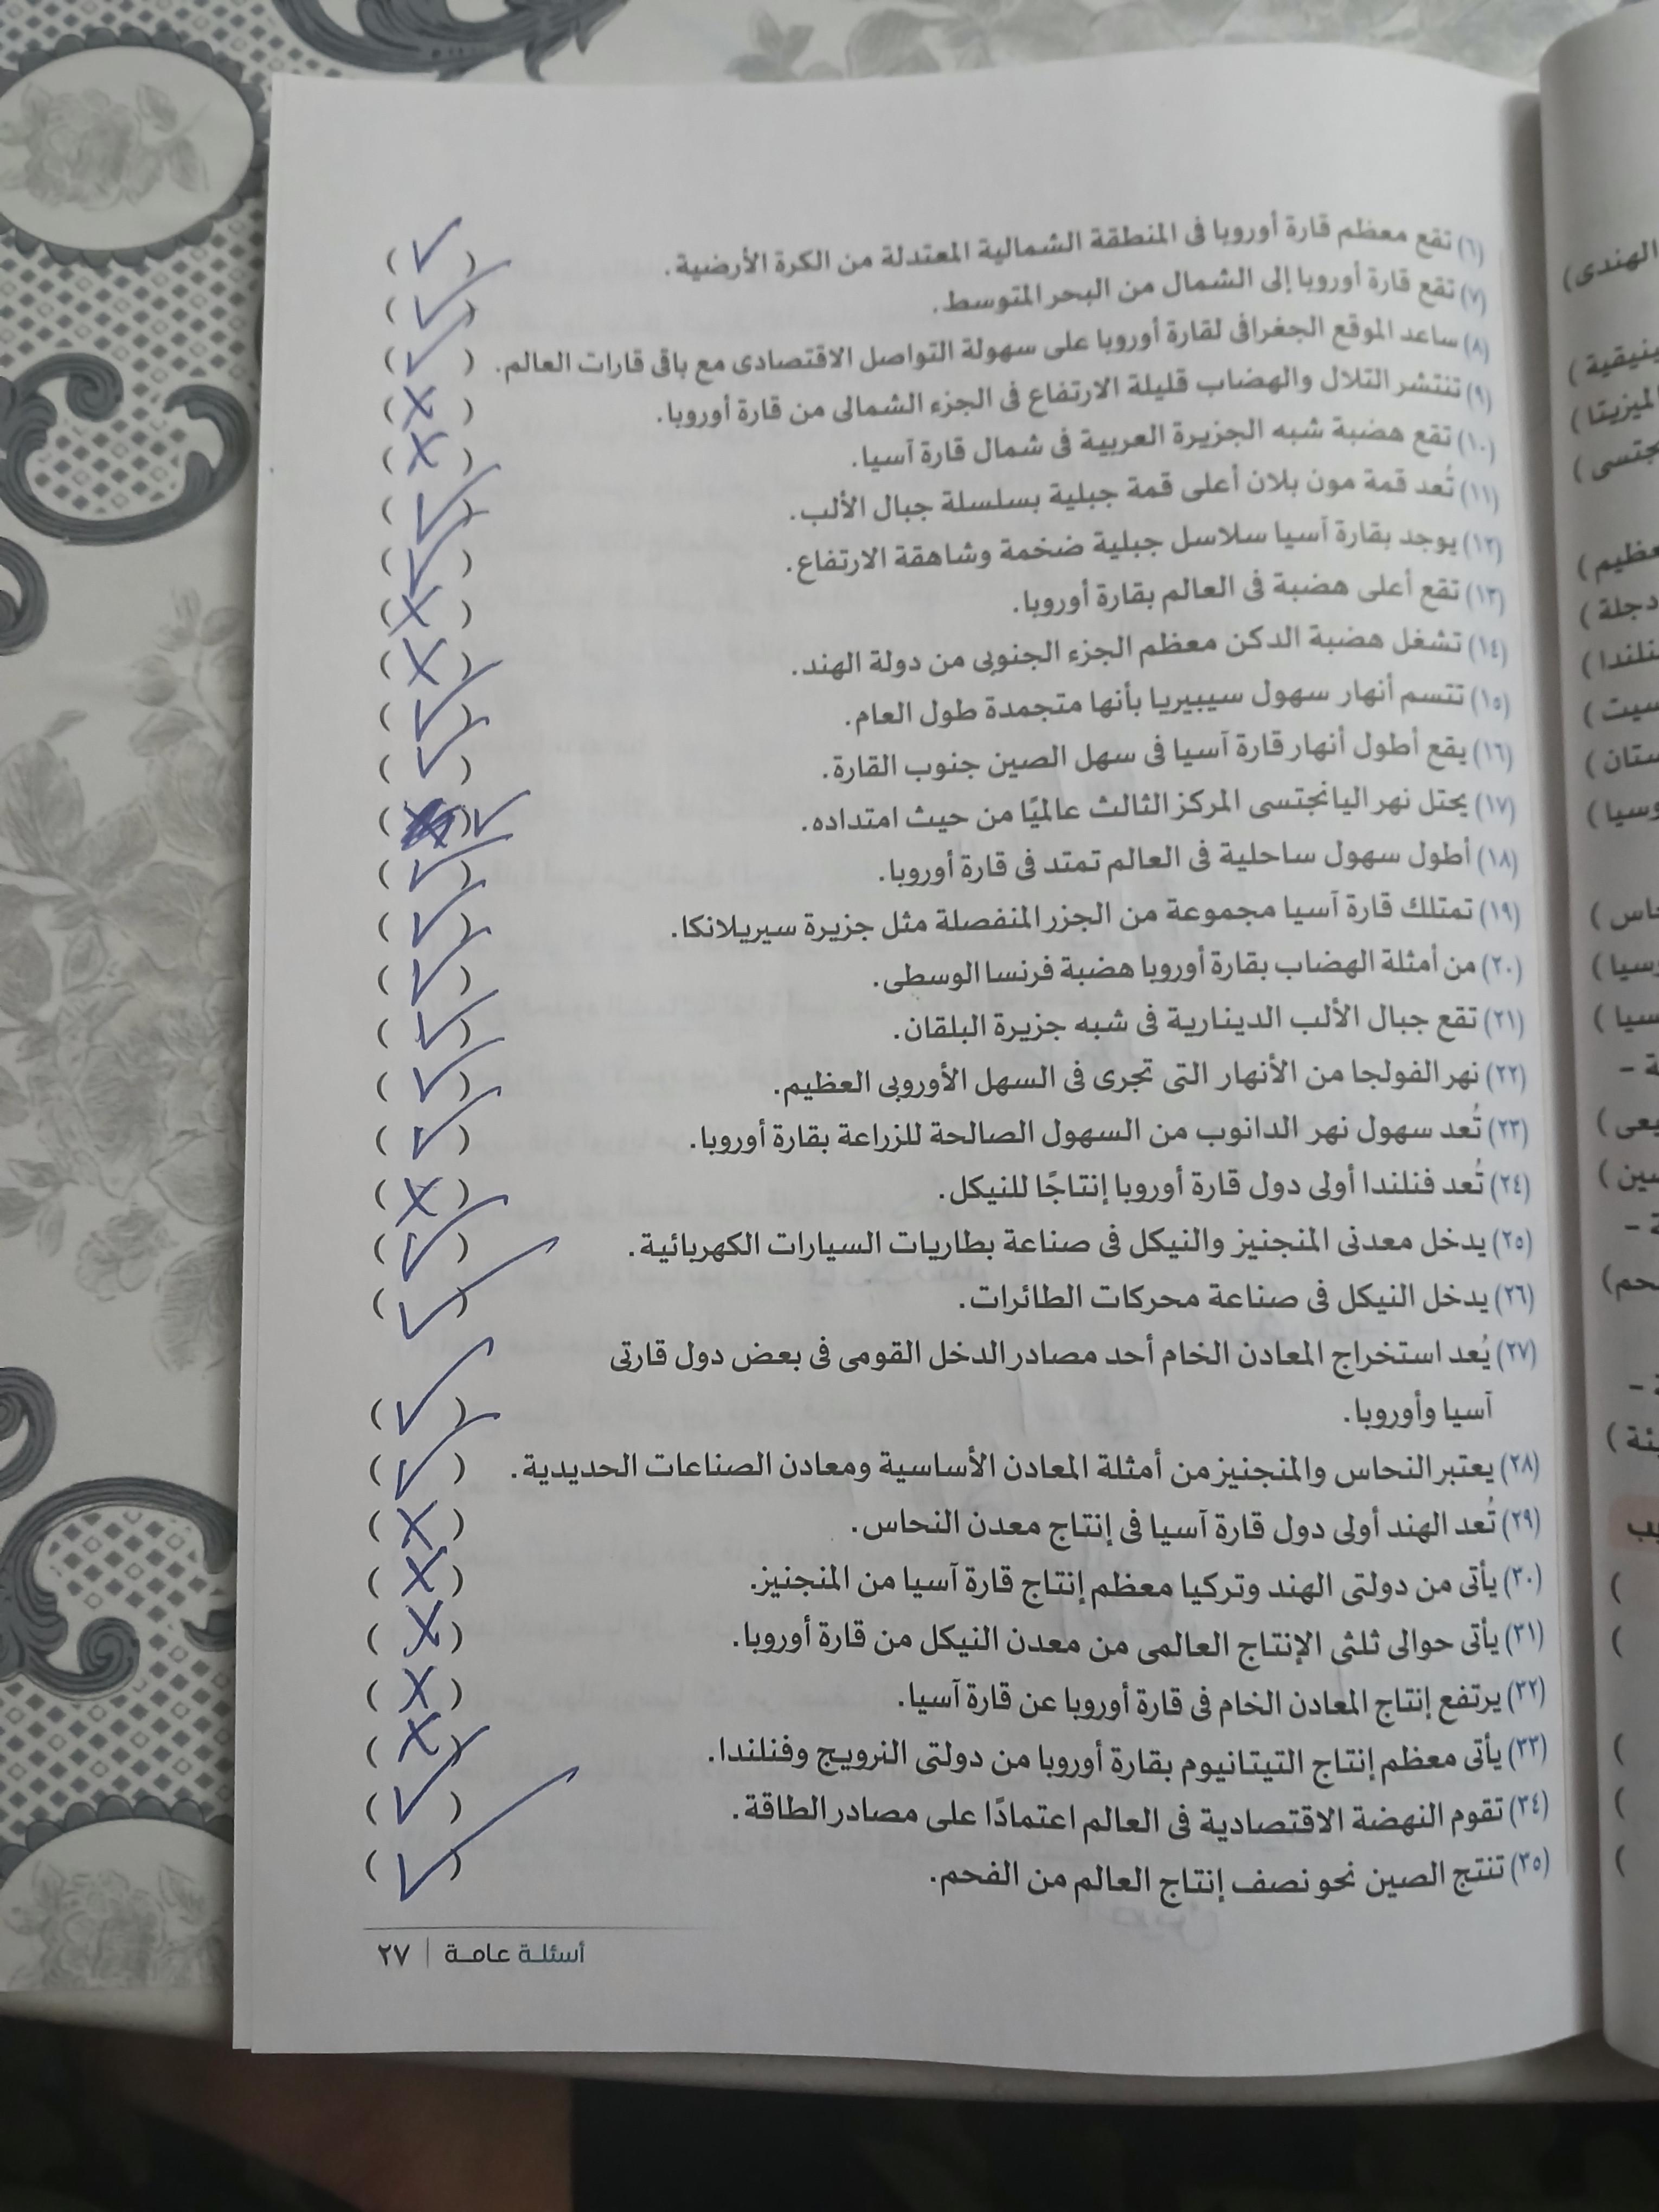 (٦) تقع معظم قارة أوروبا فى المنطقة الشمالية المعتدلة من الكرة الأرضية. (✓)
(٧) تقع قارة أوروبا إلى الشمال من البحر المتوسط. (✓)
(٨) ساعد الموقع الجغرافى لقارة أوروبا على سهولة التواصل الاقتصادى مع باقى قارات العالم. (✓)
(٩) تنتشر التلال والهضاب قليلة الارتفاع فى الجزء الشمالى من قارة أوروبا. (✗)
(١٠) تقع هضبة شبه الجزيرة العربية فى شمال قارة آسيا. (✗)
(١١) تُعد قمة مون بلان أعلى قمة جبلية بسلسلة جبال الألب. (✓)
(١٢) يوجد بقارة آسيا سلاسل جبلية ضخمة وشاهقة الارتفاع. (✓)
(١٣) تقع أعلى هضبة فى العالم بقارة أوروبا. (✗)
(١٤) تشغل هضبة الدكن معظم الجزء الجنوبى من دولة الهند. (✗)
(١٥) تتسم أنهار سهول سيبيريا بأنها متجمدة طول العام. (✓)
(١٦) يقع أطول أنهار قارة آسيا فى سهل الصين جنوب القارة. (✓)
(١٧) يحتل نهر اليانجتسى المركز الثالث عالميًا من حيث امتداده. ✓
(١٨) أطول سهول ساحلية فى العالم تمتد فى قارة أوروبا. (✓)
(١٩) تمتلك قارة آسيا مجموعة من الجزر المنفصلة مثل جزيرة سيريلانكا. (✓)
(٢٠) من أمثلة الهضاب بقارة أوروبا هضبة فرنسا الوسطى. (✓)
(٢١) تقع جبال الألب الدينارية فى شبه جزيرة البلقان. (✓)
(٢٢) نهر الفولجا من الأنهار التى تجرى فى السهل الأوروبى العظيم. (✓)
(٢٣) تُعد سهول نهر الدانوب من السهول الصالحة للزراعة بقارة أوروبا. (✓)
(٢٤) تُعد فنلندا أولى دول قارة أوروبا إنتاجًا للنيكل. (✗)
(٢٥) يدخل معدنى المنجنيز والنيكل فى صناعة بطاريات السيارات الكهربائية. (✓)
(٢٦) يدخل النيكل فى صناعة محركات الطائرات. (✓)
(٢٧) يُعد استخراج المعادن الخام أحد مصادر الدخل القومى فى بعض دول قارتى
آسيا وأوروبا. (✓)
(٢٨) يعتبر النحاس والمنجنيز من أمثلة المعادن الأساسية ومعادن الصناعات الحديدية. (✓)
(٢٩) تُعد الهند أولى دول قارة آسيا فى إنتاج معدن النحاس. (✗)
(٣٠) يأتى من دولتى الهند وتركيا معظم إنتاج قارة آسيا من المنجنيز. (✗)
(٣١) يأتى حوالى ثلثى الإنتاج العالمى من معدن النيكل من قارة أوروبا. (✗)
(٣٢) يرتفع إنتاج المعادن الخام فى قارة أوروبا عن قارة آسيا. (✗)
(٣٣) يأتى معظم إنتاج التيتانيوم بقارة أوروبا من دولتى النرويج وفنلندا. (✗)
(٣٤) تقوم النهضة الاقتصادية فى العالم اعتمادًا على مصادر الطاقة. (✓)
(٣٥) تنتج الصين نحو نصف إنتاج العالم من الفحم. (✓)
أسئلة عامة | ٢٧
الهندى)
عظيم)
دجلة)